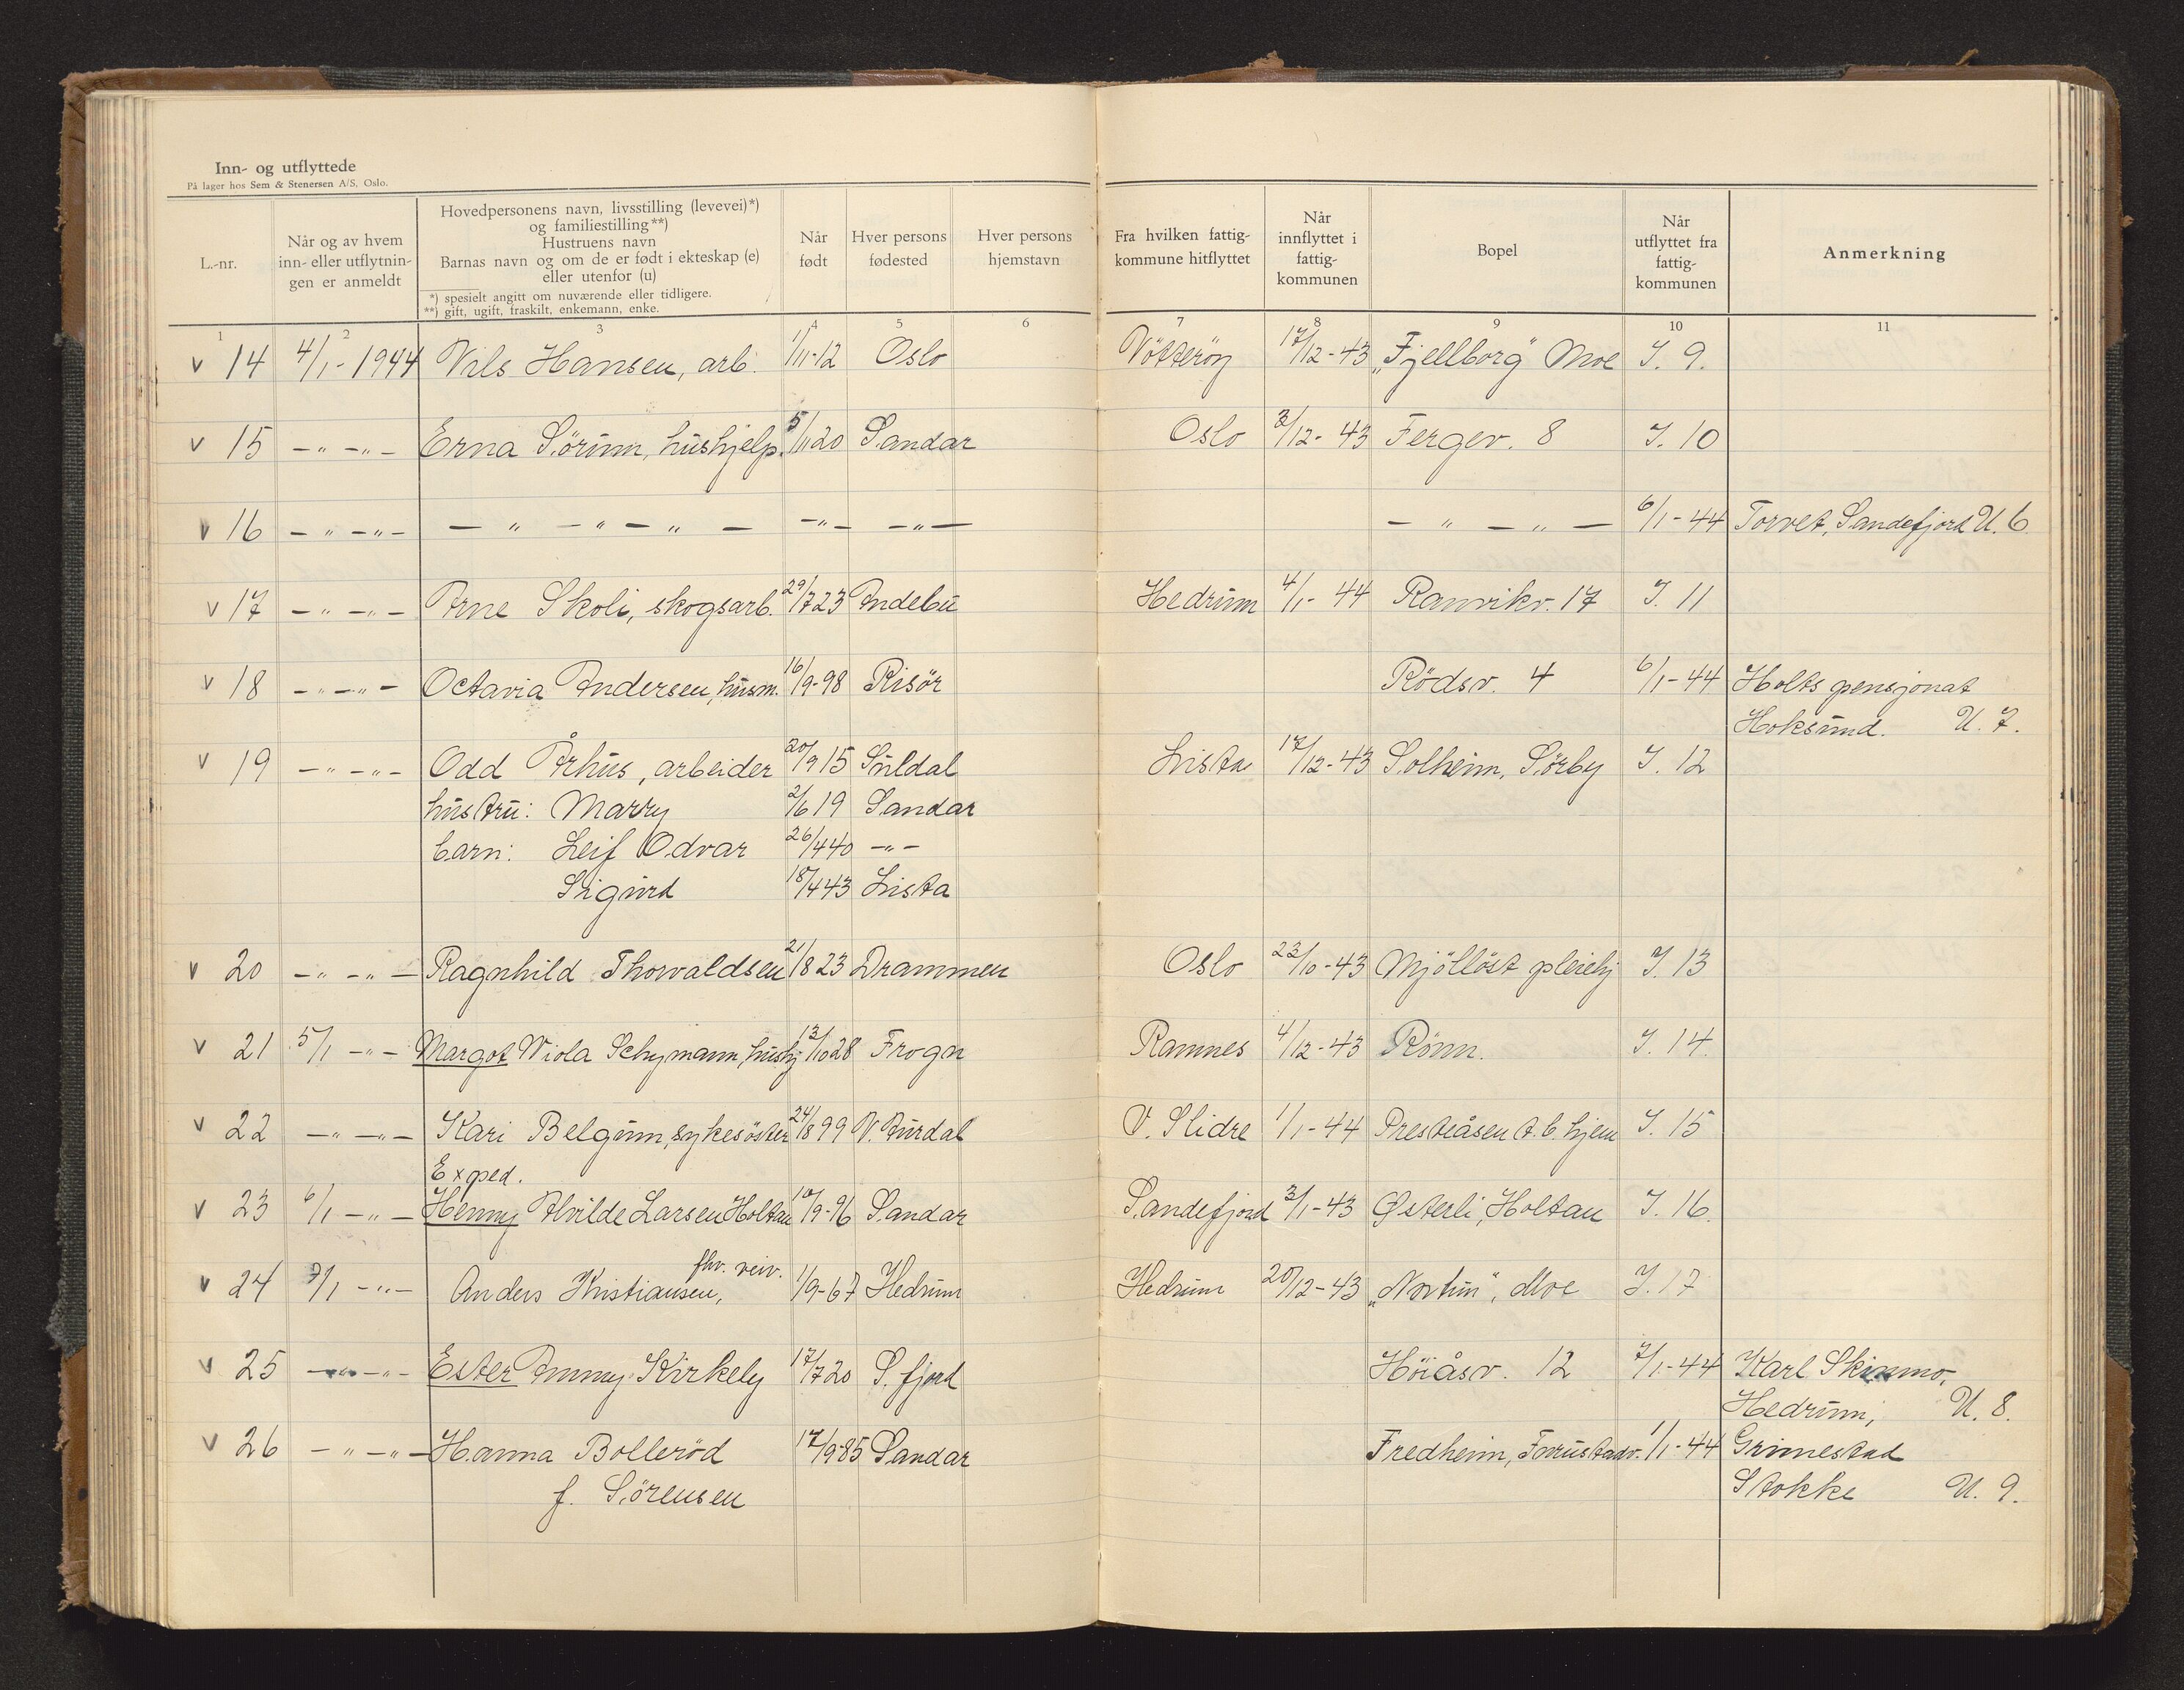 Inn- og utflyttede
På lager hos Sem & Stenersen A/S, Oslo.
L.-nr.
Når og av hvem
inn- eller utflytnin-
gen er anmeldt
Hovedpersonens navn, livsstilling (levevei)*)
og familiestilling **)
Hustruens navn
Barnas navn og om de er født i ekteskap (e)
eller utenfor (u)
*) spesielt angitt om nuværende eller tidligere.
**) gift, ugift, fraskilt, enkemann, enke.
Når
født
Hver persons
fødested
Hver persons
hjemstavn
Fra hvilken fattig-
kommune hitflyttet
Når
innflyttet i
fattig-
kommunen
Bopel
Når
utflyttet fra
fattig-
kommunen
Anmerkning
1 2 3 4 5 6 7 8 9 10 11
v 14 4/1-1944 Nils Hansen, arb. 1/11-12 Oslo Nötteröy 17/12-43 „Fjellborg" Moe I. 9.
v 15 -"- -"- Erna Sörum, hushjelp. 5/11 20 Sandar Oslo 3/12-43 Fergev. 8 I. 10
v 16 -"- -"- - " - " - " - -"- -"- - " - " - 6/1-44 Torvet, Sandefjord U. 6.
v 17 -"- -"- Arne Skoli, skogsarb. 29/7 23 Andebu Hedrum 4/1-44 Ranvikv. 17 I. 11
v 18 -"- -"- Octavia Andersen, husm. 16/9-98 Risör Rödsv. 4 6/1-44 Holts pensjonat
Hoksund. U. 7.
v 19 -"- -"- Odd Århus, arbeider 20/9 15 Suldal Lista 17/12-43 Solheim, Sörby I. 12
hustru: Marry 2/6 19 Sandar
barn: Leif Odvar 26/4 40 -"-
Sigurd 18/4 43 Lista
v 20 -"- -"- Ragnhild Thorvaldsen 21/8 23 Drammen Oslo 23/10-43 Mjöllöst pleiehj I. 13
v 21 5/1 -"- Margot Viola Schymann, hushj 13/10 28 Frogn Ramnes 4/12-43 Rönn. I. 14.
v 22 -"- -"- Kari Belgum, sykesöster 24/8 99 N. Aurdal V. Slidre 1/1-44 Presteåsen t.b. hjem I. 15
Exped.
v 23 6/1 -"- Henny Alvilde Larsen Holtan 10/9-96 Sandar Sandefjord 3/1-43 Østerli, Holtan I. 16.
fhv. veiv.
v 24 7/1 -"- Anders Kristiansen, 1/9-67 Hedrum Hedrum 20/12-43 „Nortun", Moe I. 17
v 25 -"- -"- Ester Ammy Kirkely 17/7 20 S.fjord Höiåsv. 12 7/1-44 Karl Skinmo,
Hedrum, U. 8.
v 26 -"- -"- Hanna Bolleröd 17/9-85 Sandar Fredheim, 1/1-44 Grimestad
f. Sörensen Stokke U. 9.